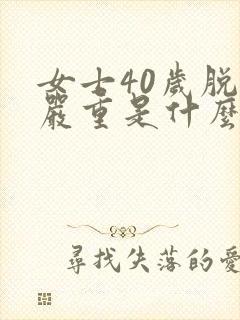 女士40歲脫
嚴重是什麼
尋找失落的愛